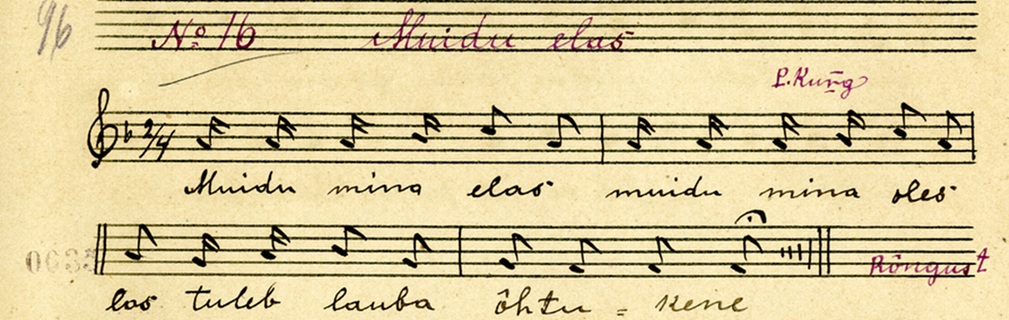 96
№ 16 Muidu elas
L. Kung
2/4
Muidu mina elas muidu mina oles
0633
Rõngust
las tuleb lauba õhtu = kene